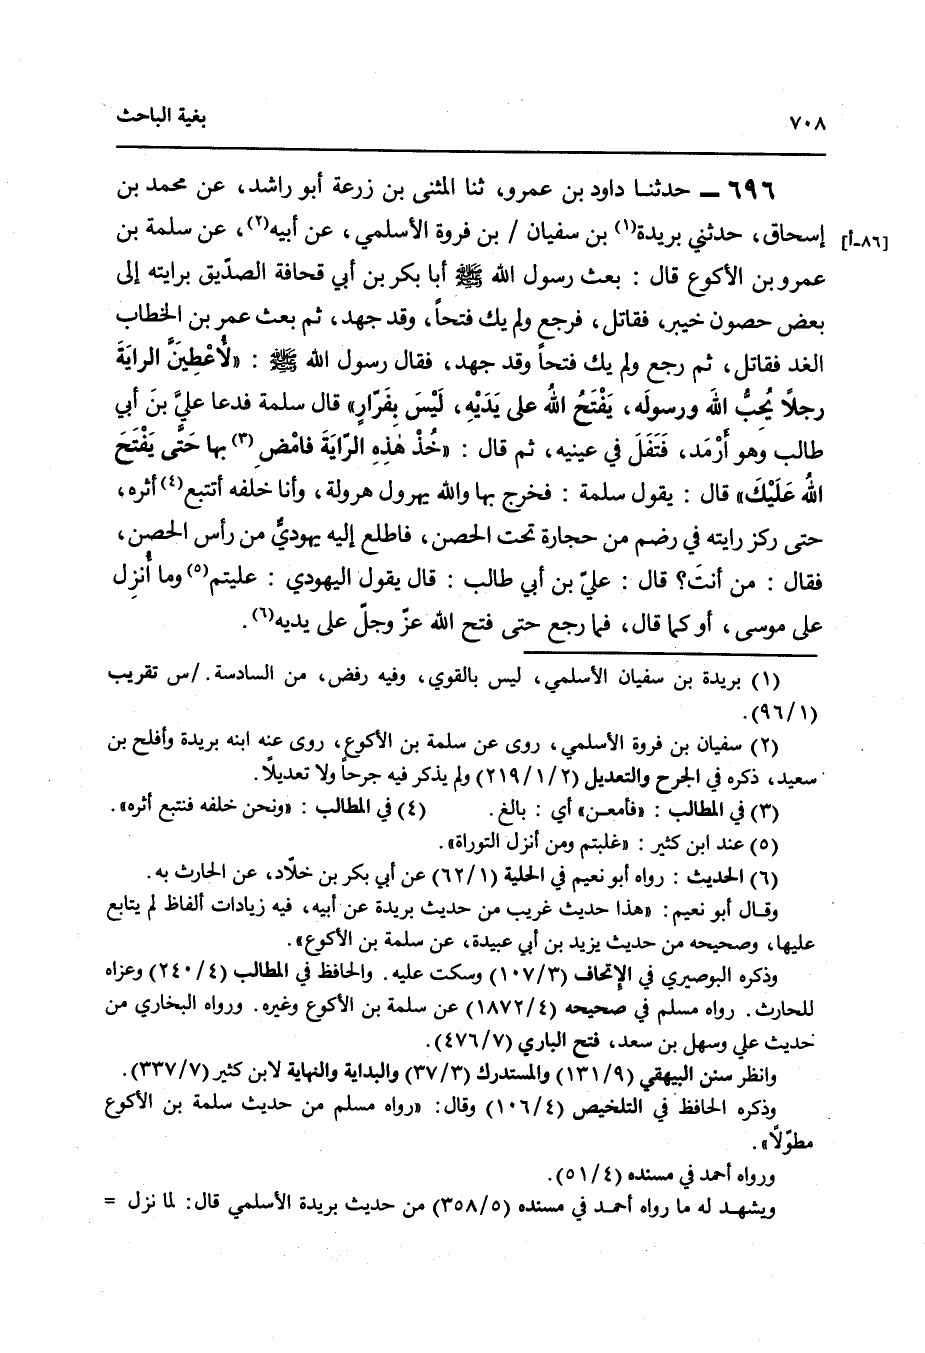 ٧٠٨ بغية الباحث
٦٩٦ ــ حدثنا داود بن عمرو، ثنا المثنى بن زرعة أبو راشد، عن محمد بن
[٨٦-أ] إسحاق، حدثني بريدة(١) بن سفيان / بن فروة الأسلمي، عن أبيه(٢)، عن سلمة بن
عمرو بن الأكوع قال : بعث رسول الله ﷺ أبا بكر بن أبي قحافة الصدّيق برايته إلى
بعض حصون خيبر، فقاتل، فرجع ولم يك فتحاً، وقد جهد، ثم بعث عمر بن الخطاب
الغد فقاتل، ثم رجع ولم يك فتحاً وقد جهد، فقال رسول الله ﷺ : «لُأعْطِيَنَّ الرايَةَ
رجلًا يُحِبُّ اللهَ ورسولَه، يَفْتَحُ اللهُ على يَدَيْهِ، لَيْسَ بِفَرّارٍ» قال سلمة فدعا عليَّ بنَ أبي
طالب وهو أَرْمَد، فَتَفَلَ في عينيه، ثم قال : «خُذْ هٰذِهِ الرّايَةَ فامْضِ(٣) بها حَتَّى يَفْتَحَ
اللهُ عَلَيْكَ» قال : يقول سلمة : فخرج بها والله يهرول هرولة، وأنا خلفه أتتبع(٤) أثره،
حتى ركز رايته في رضم من حجارة تحت الحصن، فاطلع إليه يهوديٌّ من رأس الحصن،
فقال : من أنتَ؟ قال : عليّ بن أبي طالب : قال يقول اليهودي : عليتم(٥) وما أُنزِل
على موسى، أو كما قال، فما رجع حتى فتح الله عزّ وجلّ على يديه(٦).
(١) بريدة بن سفيان الأسلمي، ليس بالقوي، وفيه رفض، من السادسة. /س تقريب
(٩٦/١).
(٢) سفيان بن فروة الأسلمي، روى عن سلمة بن الأكوع، روى عنه ابنه بريدة وأفلح بن
سعيد، ذكره في الجرح والتعديل (٢١٩/١/٢) ولم يذكر فيه جرحاً ولا تعديلاً.
(٣) في المطالب : «فأمعن» أي : بالغ. (٤) في المطالب : «ونحن خلفه فنتبع أثره».
(٥) عند ابن كثير : «غلبتم ومن أنزل التوراة».
(٦) الحديث : رواه أبو نعيم في الحلية (٦٢/١) عن أبي بكر بن خلّاد، عن الحارث به.
وقال أبو نعيم: «هذا حديث غريب من حديث بريدة عن أبيه، فيه زيادات ألفاظ لم يتابع
عليها، وصحيحه من حديث يزيد بن أبي عبيدة، عن سلمة بن الأكوع».
وذكره البوصيري في الإتحاف (١٠٧/٣) وسكت عليه. والحافظ في المطالب (٢٤٠/٤) وعزاه
للحارث. رواه مسلم في صحيحه (١٨٧٢/٤) عن سلمة بن الأكوع وغيره. ورواه البخاري من
حديث علي وسهل بن سعد، فتح الباري (٤٧٦/٧).
وانظر سنن البيهقي (١٣١/٩) والمستدرك (٣٧/٣) والبداية والنهاية لابن كثير (٣٣٧/٧).
وذكره الحافظ في التلخيص (١٠٦/٤) وقال: «رواه مسلم من حديث سلمة بن الأكوع
مطوّلاً».
ورواه أحمد في مسنده (٥١/٤).
ويشهد له ما رواه أحمد في مسنده (٣٥٨/٥) من حديث بريدة الأسلمي قال: لما نزل =